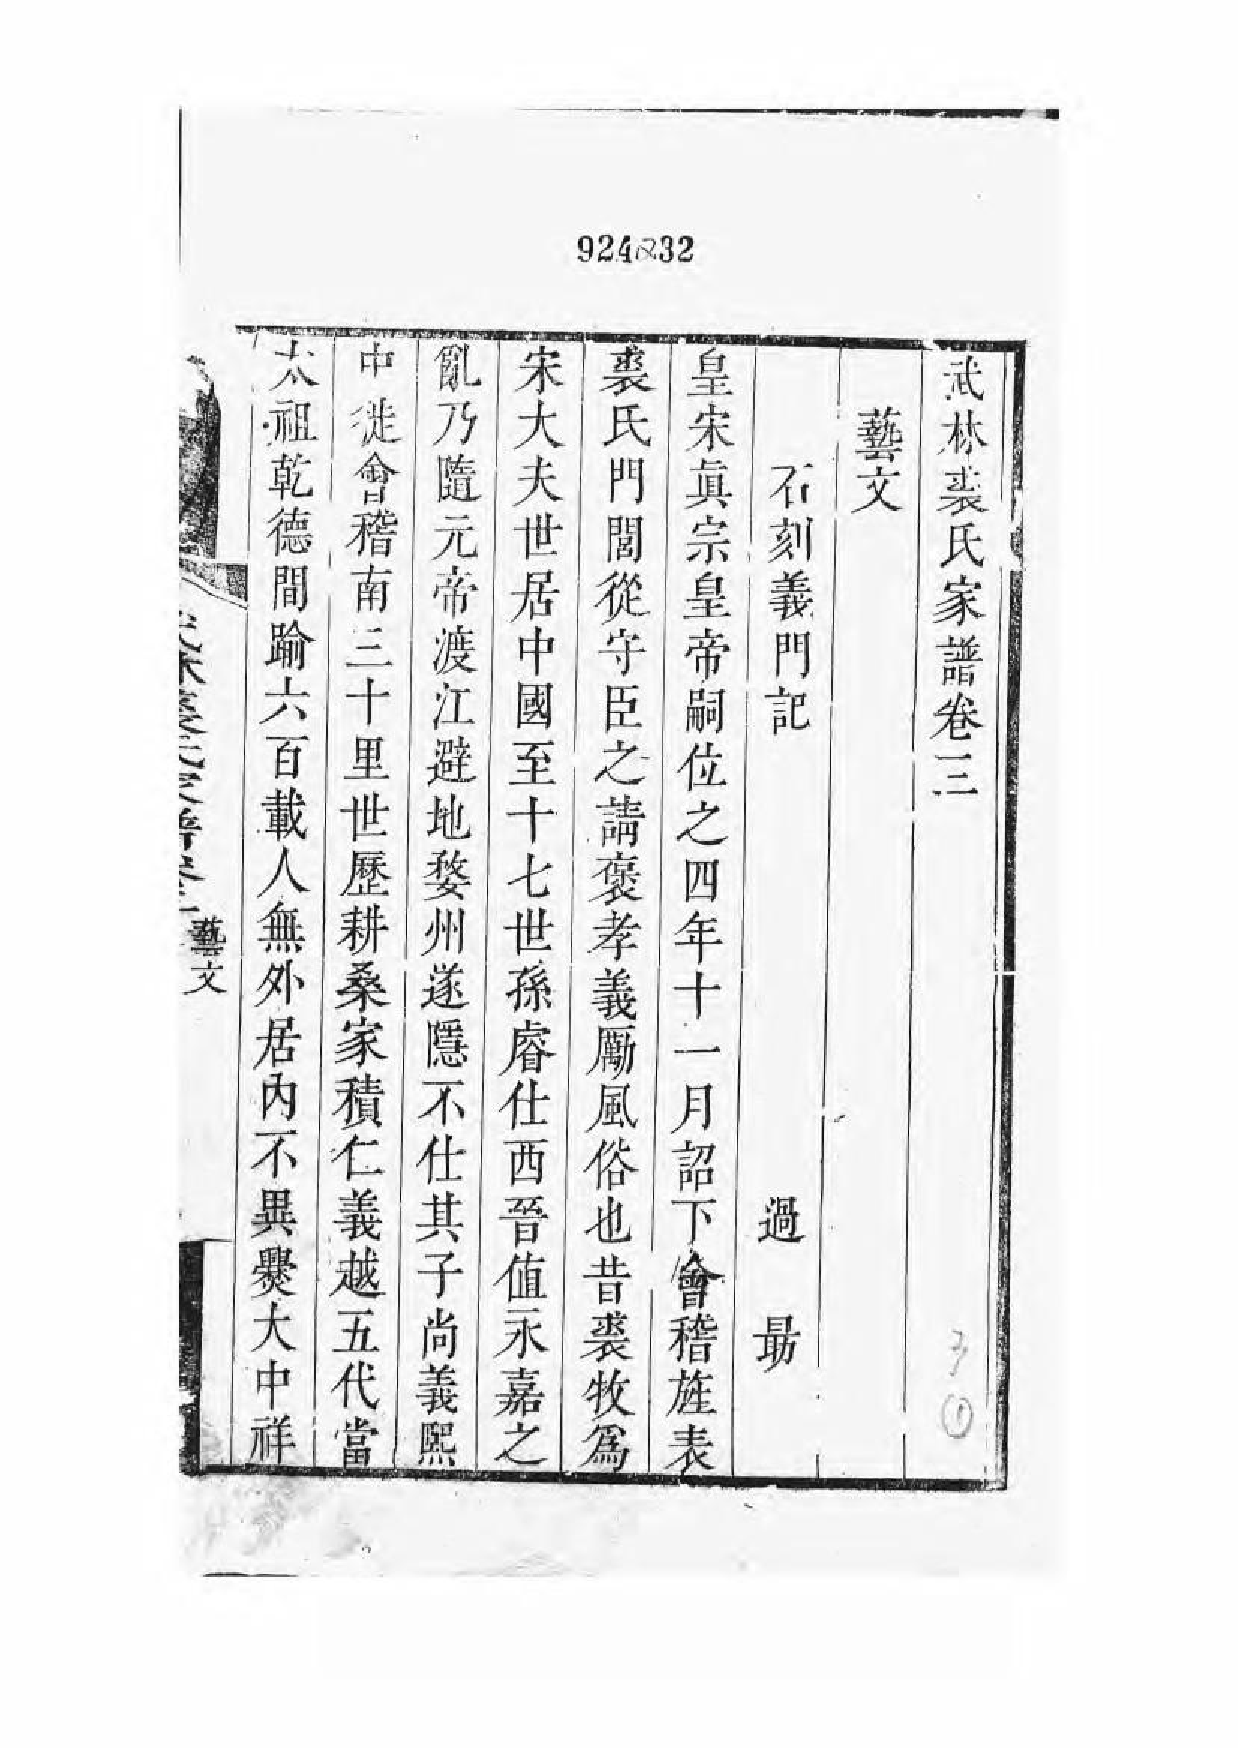 924032
武林裘氏家譜卷三
藝文
石刻義門記 過 勗
皇宋眞宗皇帝嗣位之四年十一月詔下會稽旌表
裘氏門閭從守臣之請褒孝義勵風俗也昔裘牧爲
宋大夫世居中國至十七世孫睿仕西晉值永嘉之
亂乃隨元帝渡江避地婺州遂隱不仕其子尚義熙
中徙會稽南三十里世歷耕桑家積仁義越五代當
太祖乾德間踰六百載人無外居內不異爨大中祥
武林裘氏家譜卷三 藝文